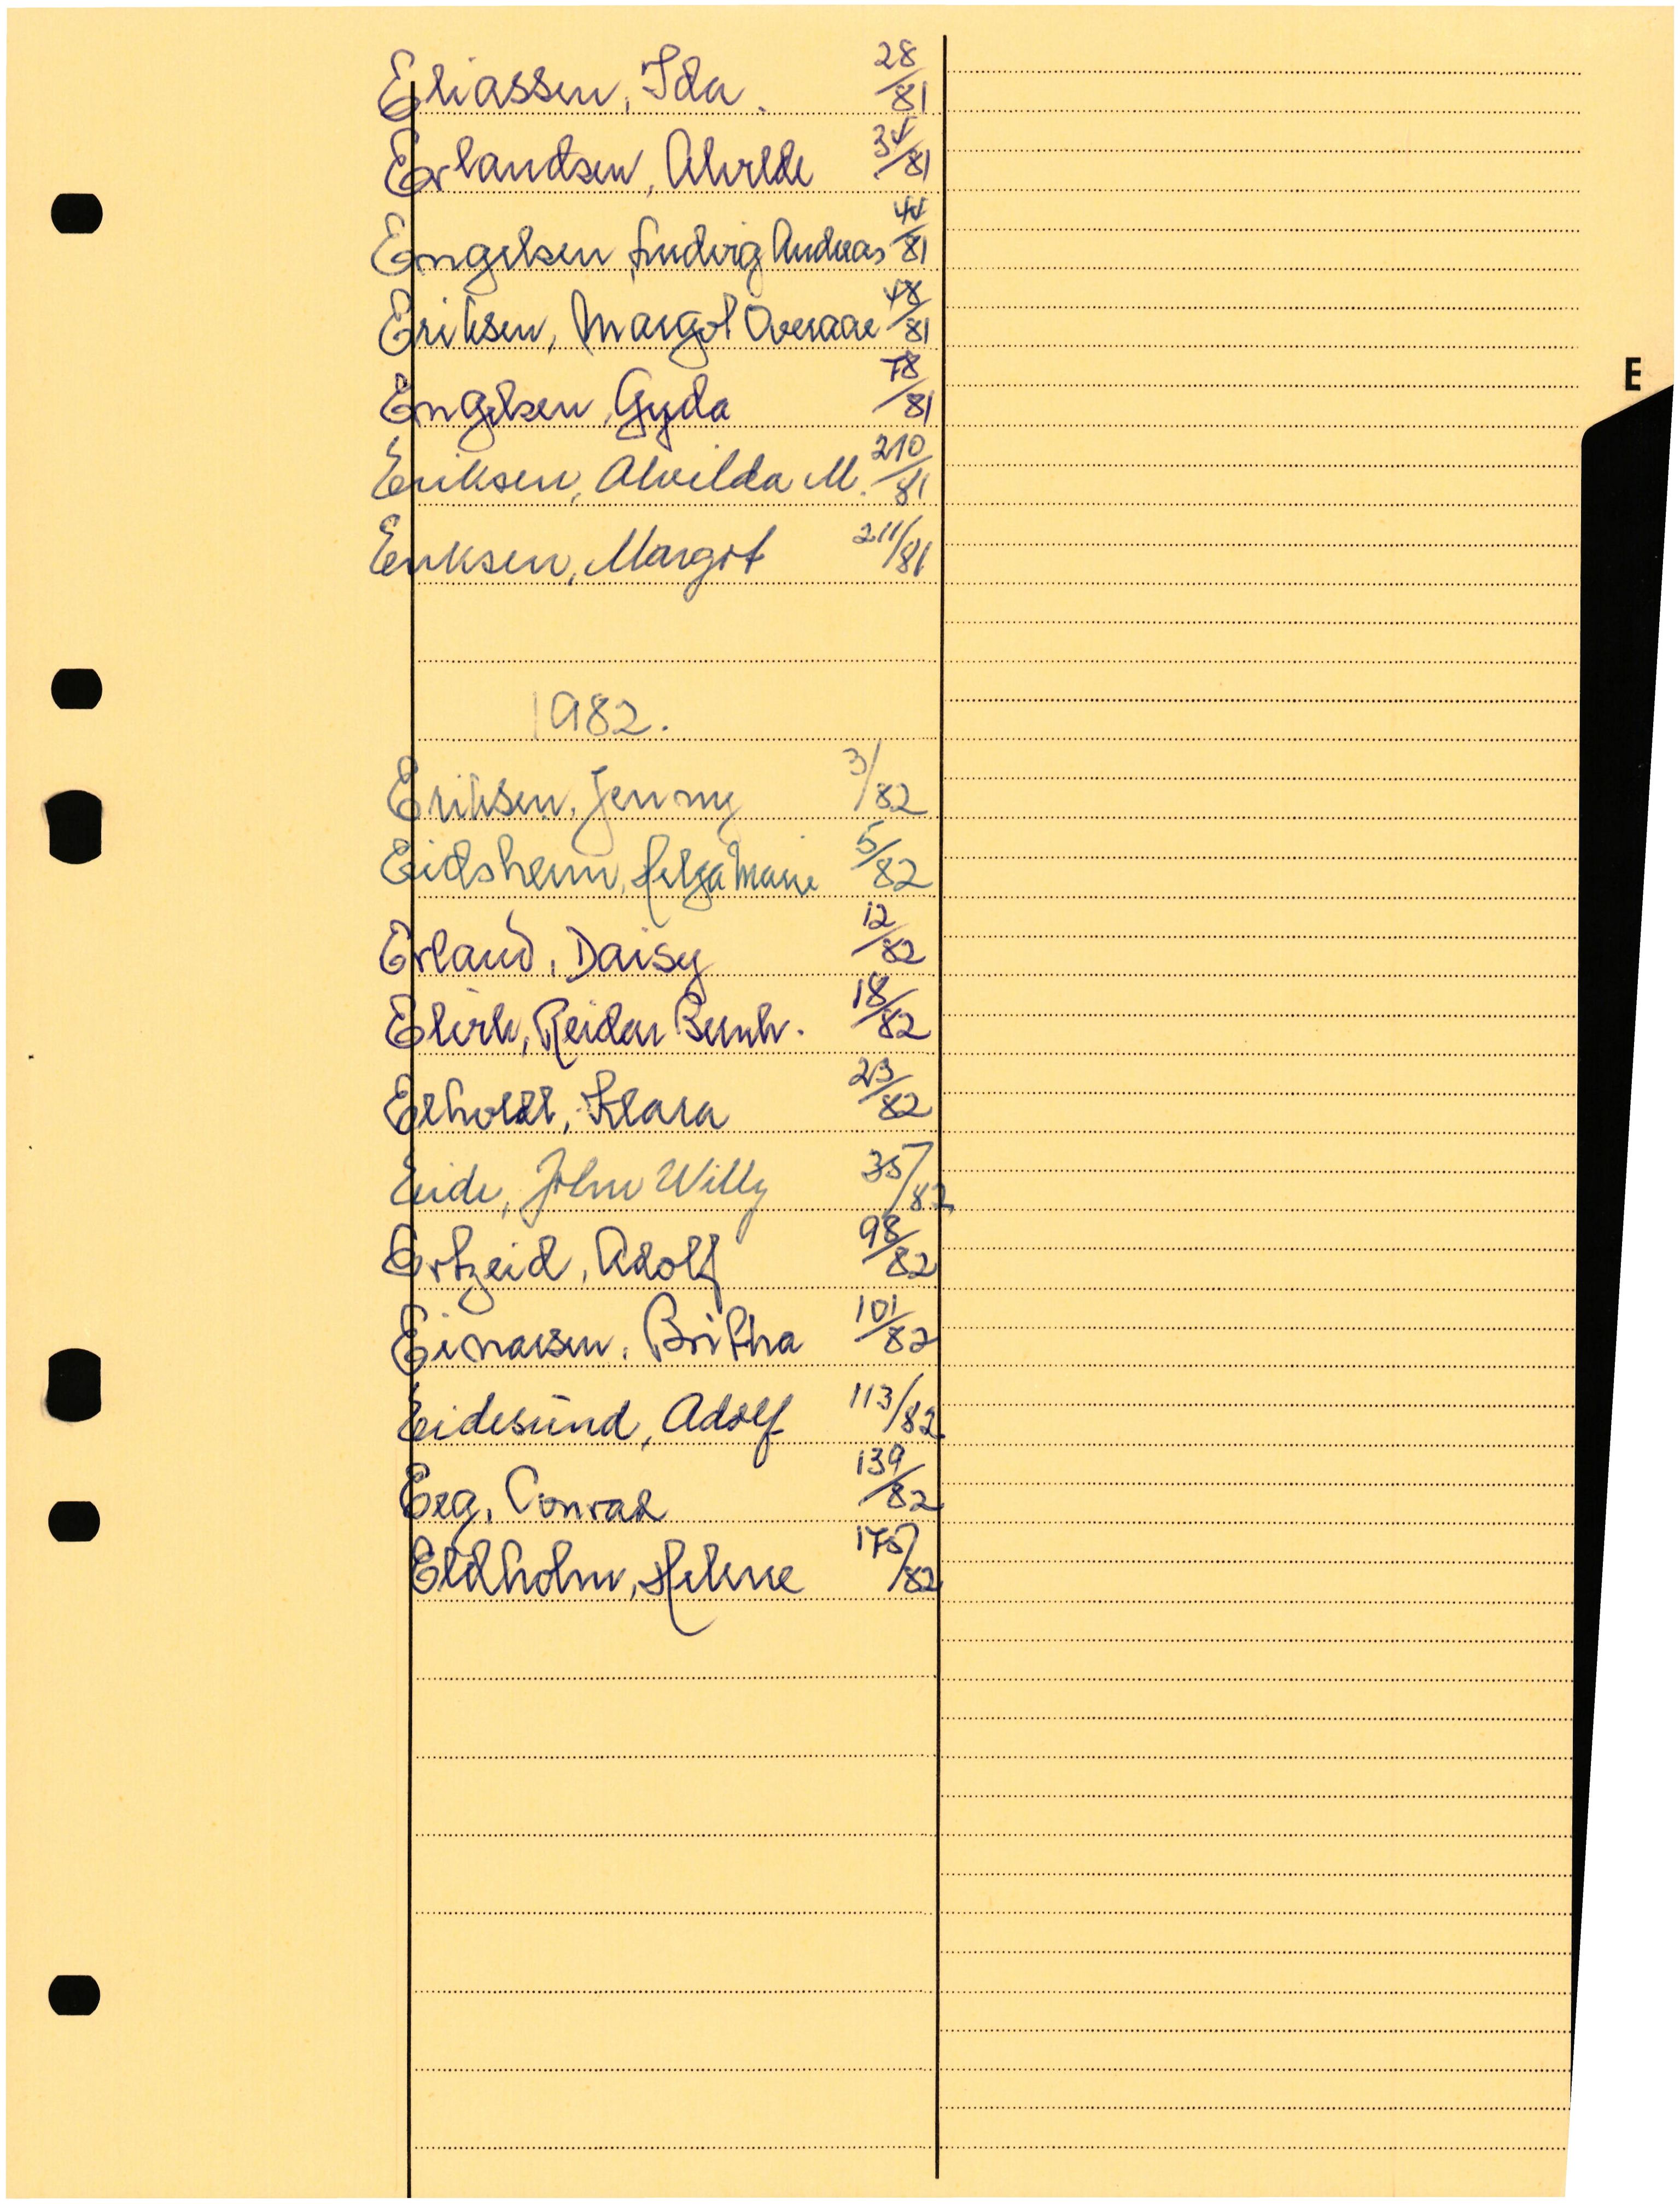 Eliassen, Ida. 28/81
Erlandsen, Alvilde 34/81
Engelsen, Ludvig Andreas 44/81
Eriksen, Margot Overaae 48/81
Engelsen, Gyda 78/81
E
Eriksen, Alvilda M. 210/81
Eriksen, Margot 211/81
1982.
Eriksen, Jenny 3/82
Eidsheim, Helga Marie 5/82
Erland, Daisy 12/82
Reidar Bernh. 18/82
Klara 23/82
Eide, John Willy 35/82
Ertzeid, Adolf 98/82
Einarsen, Britha 101/82
Eidesund, Adolf 113/82
Eeg, Conrad 139/82
Eldholm, Helene 175/82